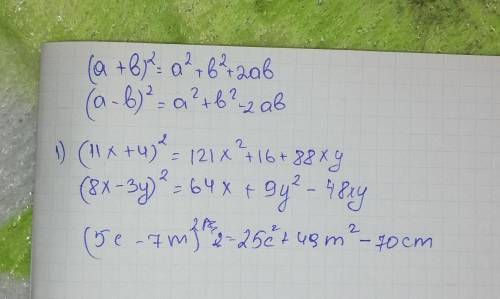 (a+в)²=a²+в²+2aв
(a-в)²=a²+в²-2aв
1) (11x+4)²=121x²+16+88xy
(8x-3y)²=64x+9y²-48xy
(5c-7m)²=25c²+49m²-70cm